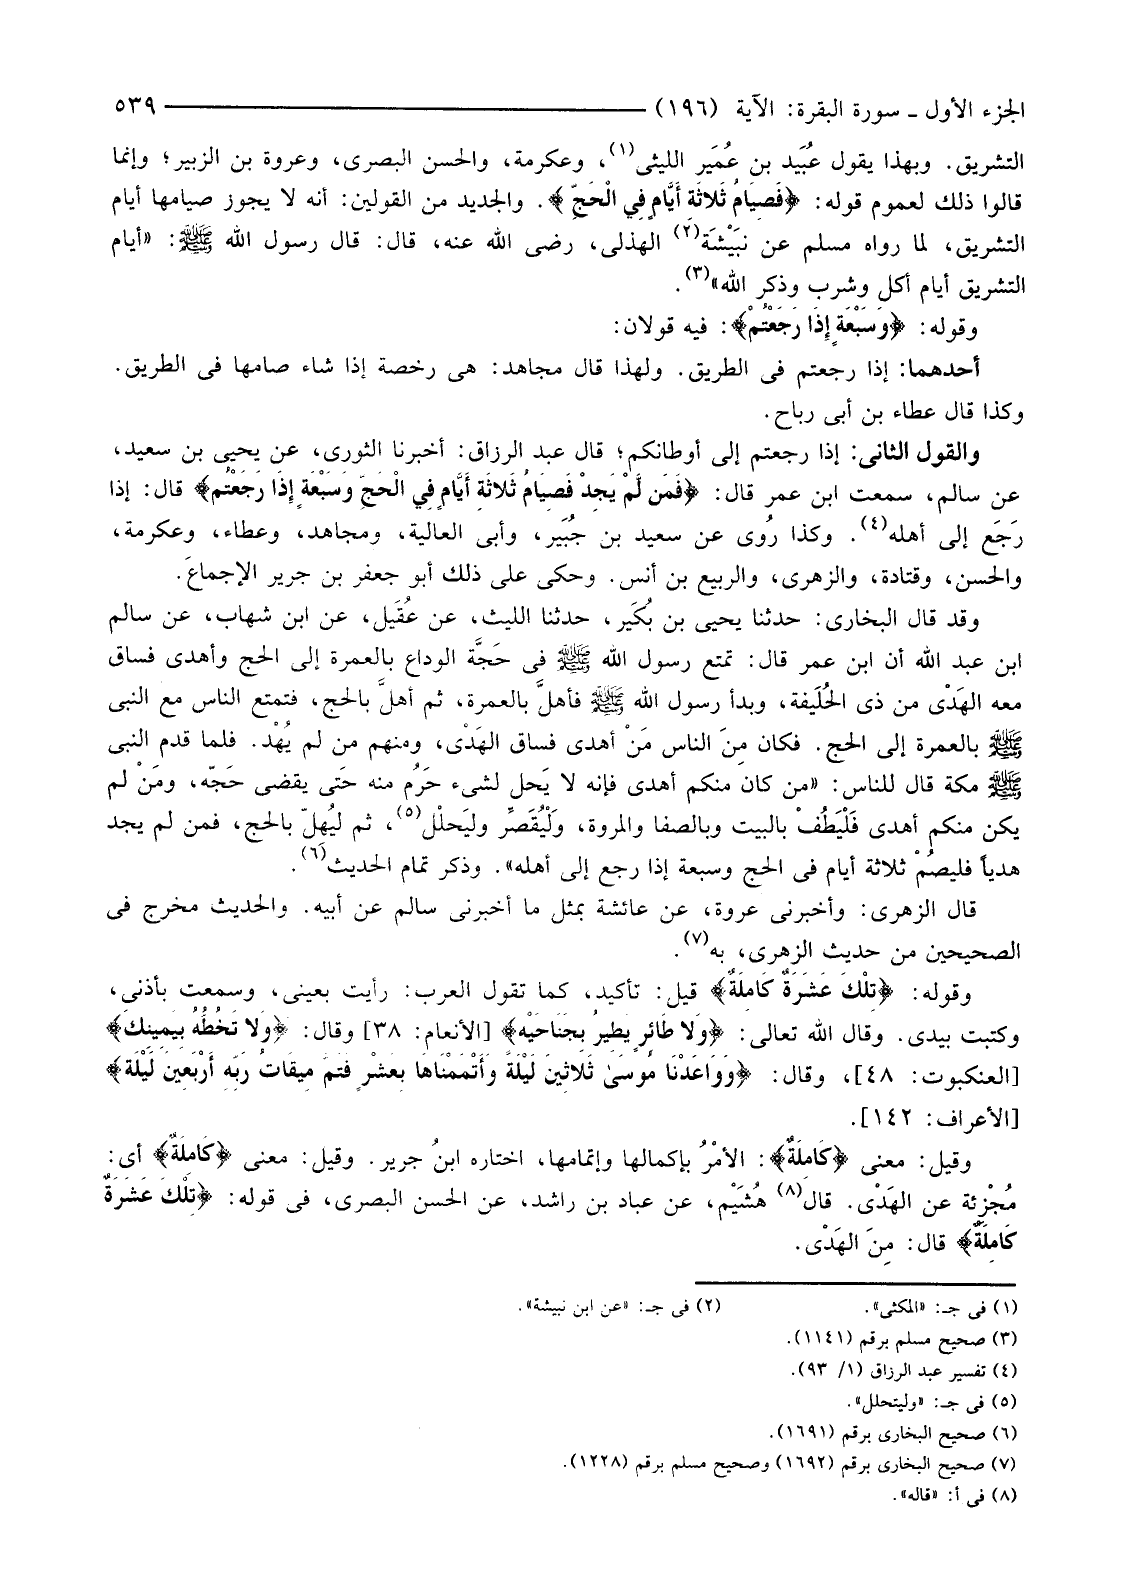 الجزء الأول ـ سورة البقرة: الآية (١٩٦) ٥٣٩
التشريق. وبهذا يقول عُبَيد بن عُمَير الليثى(١)، وعكرمة، والحسن البصرى، وعروة بن الزبير؛ وإنما
قالوا ذلك لعموم قوله: ﴿فَصِيَامُ ثَلاثَةِ أَيَّامٍ فِي الْحَجِّ﴾. والجديد من القولين: أنه لا يجوز صيامها أيام
التشريق، لما رواه مسلم عن نبَيْشَة(٢) الهذلى، رضى الله عنه، قال: قال رسول الله ﷺ: «أيام
التشريق أيام أكل وشرب وذكر الله»(٣).
وقوله: ﴿وَسَبْعَةٍ إِذَا رَجَعْتُمْ﴾: فيه قولان:
أحدهما: إذا رجعتم فى الطريق. ولهذا قال مجاهد: هى رخصة إذا شاء صامها فى الطريق.
وكذا قال عطاء بن أبى رباح.
والقول الثانى: إذا رجعتم إلى أوطانكم؛ قال عبد الرزاق: أخبرنا الثورى، عن يحيى بن سعيد،
عن سالم، سمعت ابن عمر قال: ﴿فَمَن لَّمْ يَجِدْ فَصِيَامُ ثَلاثَةِ أَيَّامٍ فِي الْحَجِّ وَسَبْعَةٍ إِذَا رَجَعْتُمْ﴾ قال: إذا
رَجَع إلى أهله(٤). وكذا رُوى عن سعيد بن جُبَير، وأبى العالية، ومجاهد، وعطاء، وعكرمة،
والحسن، وقتادة، والزهرى، والربيع بن أنس. وحكى على ذلك أبو جعفر بن جرير الإجماعَ.
وقد قال البخارى: حدثنا يحيى بن بُكَير، حدثنا الليث، عن عُقَيل، عن ابن شهاب، عن سالم
ابن عبد الله أن ابن عمر قال: تمتع رسول الله ﷺ فى حَجَّة الوداع بالعمرة إلى الحج وأهدى فساق
معه الهَدْى من ذى الحُلَيفة، وبدأ رسول الله ﷺ فأهلَّ بالعمرة، ثم أهلَّ بالحج، فتمتع الناس مع النبى
ﷺ بالعمرة إلى الحج. فكان مِنَ الناس مَنْ أهدى فساق الهَدْى، ومنهم من لم يُهْد. فلما قدم النبى
ﷺ مكة قال للناس: «من كان منكم أهدى فإنه لا يَحل لشىء حَرُم منه حَتى يقضى حَجّه، ومَنْ لم
يكن منكم أهدى فَلْيَطُفْ بالبيت وبالصفا والمروة، وَلْيُقَصِّر وليَحلل(٥)، ثم ليُهِلّ بالحج، فمن لم يجد
هدياً فليصُمْ ثلاثة أيام فى الحج وسبعة إذا رجع إلى أهله». وذكر تمام الحديث(٦).
قال الزهرى: وأخبرنى عروة، عن عائشة بمثل ما أخبرنى سالم عن أبيه. والحديث مخرج فى
الصحيحين من حديث الزهرى، به(٧).
وقوله: ﴿تِلْكَ عَشَرَةٌ كَامِلَةٌ﴾ قيل: تأكيد، كما تقول العرب: رأيت بعينى، وسمعت بأذنى،
وكتبت بيدى. وقال الله تعالى: ﴿وَلا طَائِرٍ يَطِيرُ بِجَنَاحَيْهِ﴾ [الأنعام: ٣٨] وقال: ﴿وَلا تَخُطُّهُ بِيَمِينِكَ﴾
[العنكبوت: ٤٨]، وقال: ﴿وَوَاعَدْنَا مُوسَىٰ ثَلاثِينَ لَيْلَةً وَأَتْمَمْنَاهَا بِعَشْرٍ فَتَمَّ مِيقَاتُ رَبِّهِ أَرْبَعِينَ لَيْلَةً﴾
[الأعراف: ١٤٢].
وقيل: معنى ﴿كَامِلَةٌ﴾: الأمْرُ بإكمالها وإتمامها، اختاره ابنُ جرير. وقيل: معنى ﴿كَامِلَةٌ﴾ أى:
مُجْزِئة عن الهَدْى. قال(٨) هُشَيْم، عن عباد بن راشد، عن الحسن البصرى، فى قوله: ﴿تِلْكَ عَشَرَةٌ
كَامِلَةٌ﴾ قال: مِنَ الهَدْى.
(١) فى جـ: «المكثى». (٢) فى جـ: «عن ابن نبيشة».
(٣) صحيح مسلم برقم (١١٤١).
(٤) تفسير عبد الرزاق (١/ ٩٣).
(٥) فى جـ: «وليتحلل».
(٦) صحيح البخارى برقم (١٦٩١).
(٧) صحيح البخارى برقم (١٦٩٢) وصحيح مسلم برقم (١٢٢٨).
(٨) فى أ: «قاله».